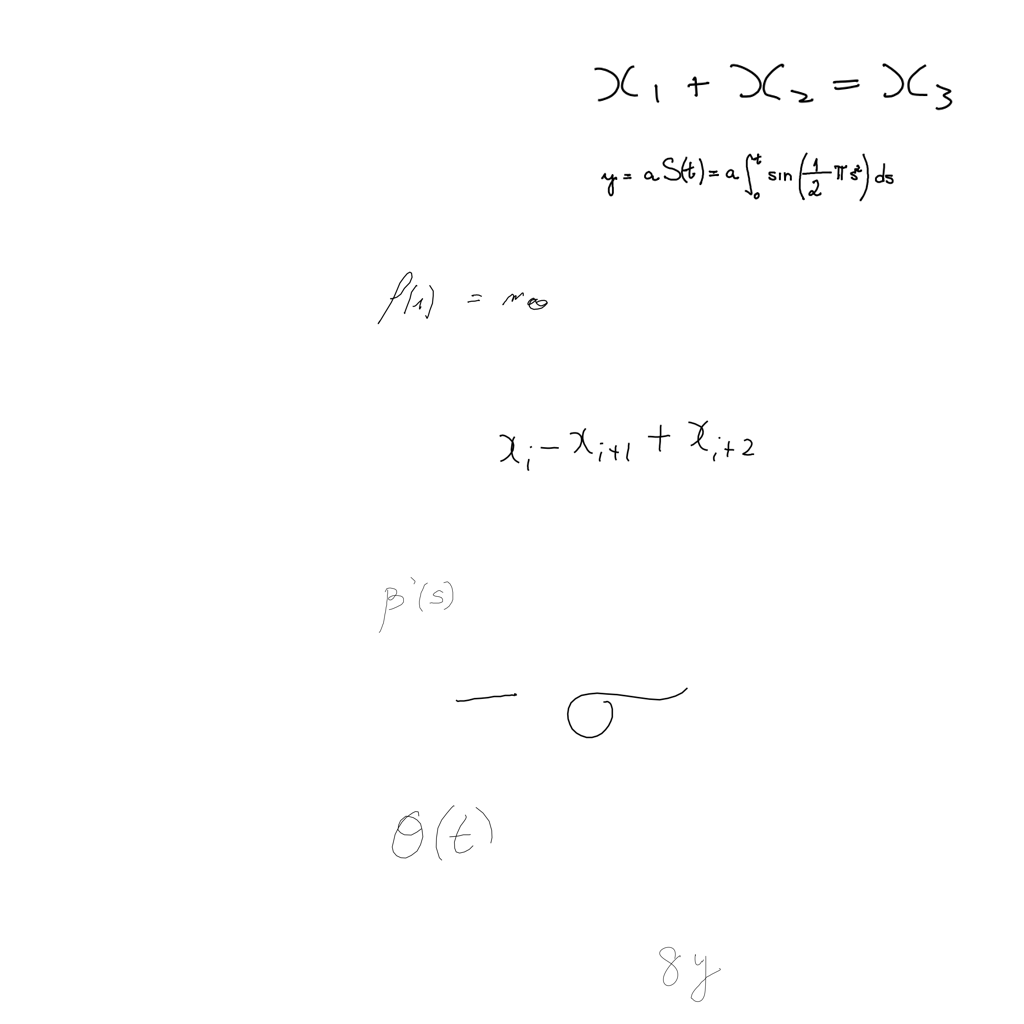 x₁ + x₂ = x₃
y = a S(t) = a ∫₀ᵗ sin(½ π s²) ds
ρ(1) = m₀
xᵢ − xᵢ₊₁ + xᵢ₊₂
β'(s)
− σ
θ(t)
8y